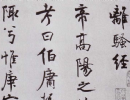 離騷經
帝高陽之
考曰伯庸
陬兮惟庚